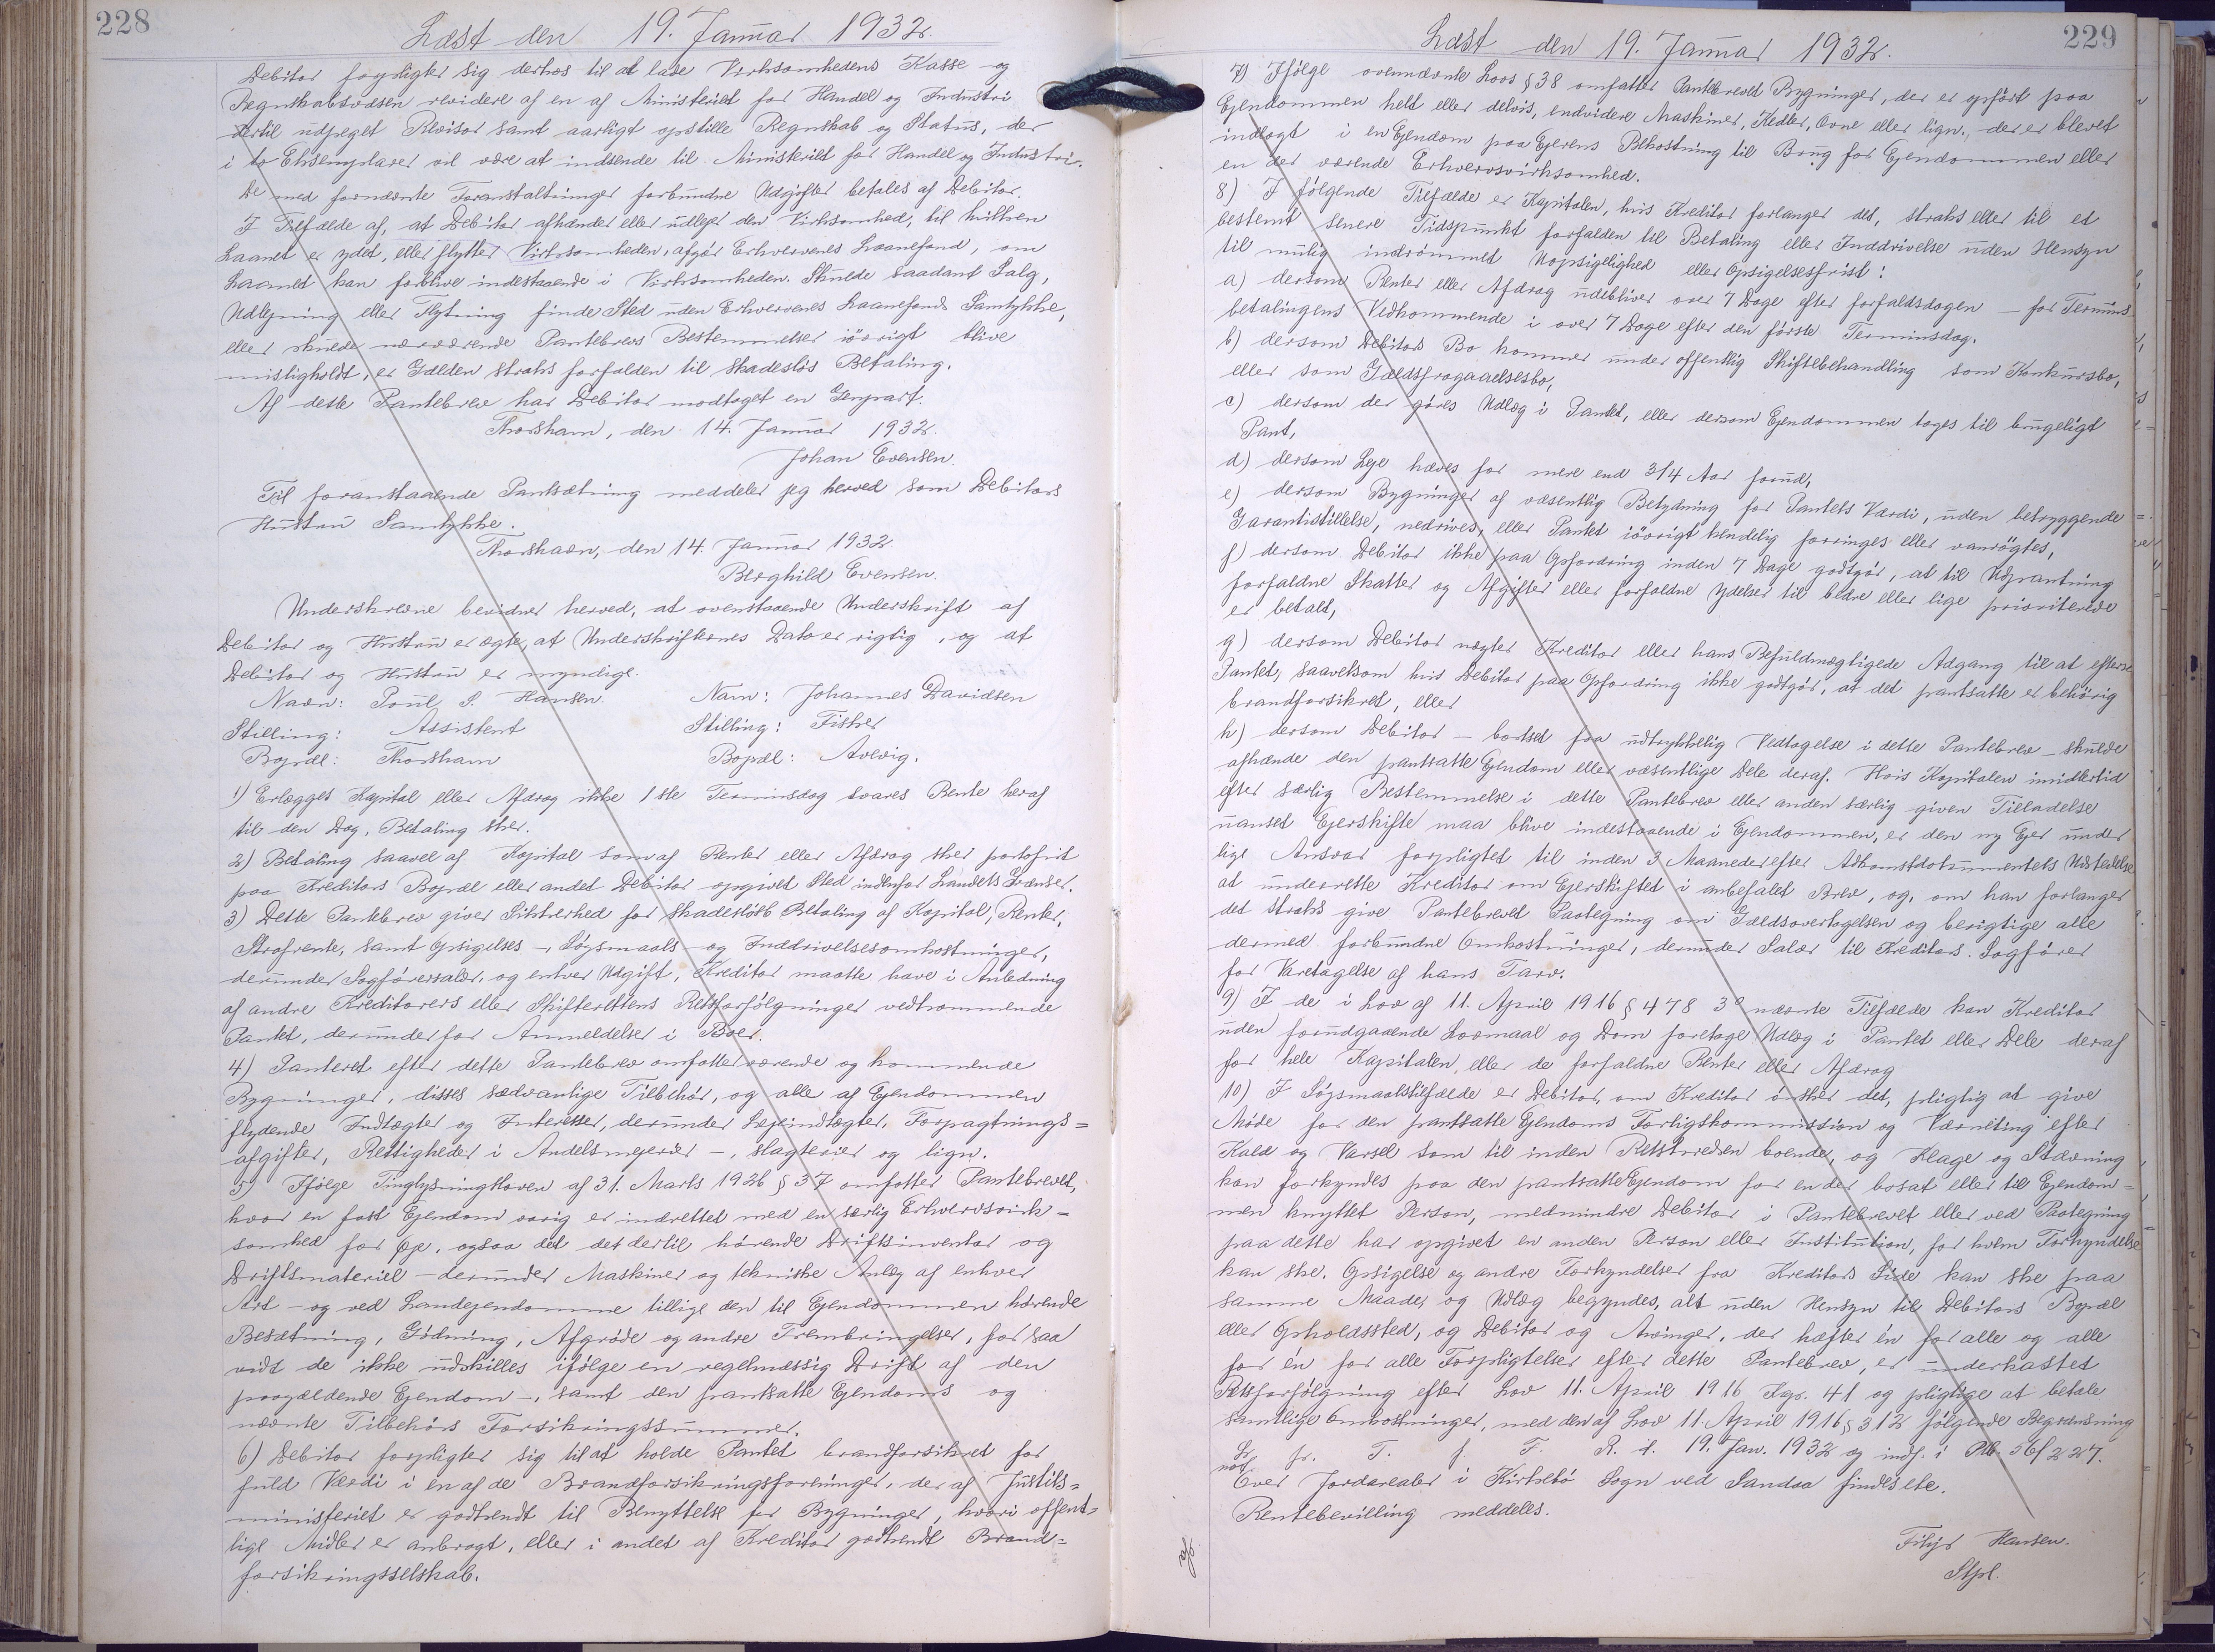 228
Læst den 19. Januar 1932.
Debitor forpligter sig derhos til at lade Virksomhedens Kasse og
Regnskabsvæsen revidere af en af Ministeriet for Handel og Industri
dertil udpeget Revisor samt aarligt opstille Regnskab og Status, der
i to Eksemplarer vil være at indsende til Ministeriet for Handel og Industri.
De med fornævnte Foranstaltninger forbundne Udgifter betales af Debitor.
I Tilfælde af, at Debitor afhænder eller udlejer den Virksomhed, til hvilken
Laanet er ydet, eller flytter Virksomheden, afgør Erhvervenes Laanefond, om
Laanet kan forblive indestaaende i Virksomheden. Skulde saadant Salg,
Udlejning eller Flytning finde Sted uden Erhvervenes Laanefonds Samtykke,
eller skulde nærværende Pantebrevs Bestemmelser iövrigt blive
misligholdt, er Gælden straks forfalden til skadeslös Betaling.
Af dette Pantebrev har Debitor modtaget en Genpart.
Thorshavn, den 14. Januar 1932.
Johan Evensen.
Til foranstaaende Pantsætning meddeler jeg herved som Debitors
Hustru Samtykke.
Thorshavn, den 14. Januar 1932.
Berghild Evensen.
Underskrevne bevidner herved, at ovenstaaende Underskrift af
Debitor og Hustru er ægte, at Underskrifternes Dato er rigtig, og at
Debitor og Hustru er myndige.
Navn: Poul S. Hansen. Navn: Johannes Davidsen
Stilling: Assistent Stilling: Fisker
Bopæl: Thorshavn Bopæl: Avevig.
1) Erlægges Kapital eller Afdrag ikke 1ste Terminsdag svares Rente heraf
til den Dag, Betaling sker.
2) Betaling saavel af Kapital som af Renter eller Afdrag sker portofrit
paa Kreditors Bopæl eller andet Debitor opgivet Sted indenfor Landets Grænser.
3) Dette Pantebrev giver Sikkerhed for skadeslös Betaling af Kapital, Renter,
Strafrente, samt Opsigelses-, Søgsmaals- og Inddrivelsesomkostninger,
derunder Sagförersalær, og enhver Udgift, Kreditor maatte have i Anledning
af andre Kreditorers eller Skifterettens Retsforfölgninger vedkommende
Pantet, derunder for Anmeldelser i Boer.
4) Panteret efter dette Pantebrev omfatter værende og kommende
Bygninger, disses sædvanlige Tilbehör, og alle af Ejendommen
flydende Indtægter og Interesser, derunder Lejeindtægter, Forpagtnings=
afgifter, Rettigheder i Andelsmejerier -, slagterier og lign.
5) Ifölge Tinglysningsloven af 31. Marts 1926 § 37 omfatter Pantebrevet,
hvor en fast Ejendom varig er indrettet med en særlig Erhvervsvirk=
somhed for Øje, ogsaa det det dertil hörende Driftsinventar og
Driftsmateriel - derunder Maskiner og tekniske Anlæg af enhver
Art - og ved Landejendomme tillige den til Ejendommen hörende
Besætning, Gödning, Afgröde og andre Frembringelser, for saa
vidt de ikke udskilles ifölge en regelmæssig Drift af den
paagældende Ejendom -, samt den pantsatte Ejendoms og
nævnte Tilbehörs Forsikringssummer.
6) Debitor forpligter sig til at holde Pantet brandforsikret for
fuld Værdi i en af de Brandforsikringsforeninger, der af Justits=
ministeriet er godkendt til Benyttelse for Bygninger, hvori offent=
lige Midler er anbragt, eller i andet af Kreditor godkendt Brand=
forsikringsselskab.
229
Læst den 19. Januar 1932.
7) Ifölge ovennævnte Lovs § 38 omfatter Pantebrevet Bygninger, der er opfört paa
Ejendommen helt eller delvis, endvidere Maskiner, Kedler, Ovne eller lign., der er blevet
indlagt i en Ejendom paa Ejerens Bekostning til Brug for Ejendommen eller
en der værende Erhvervsvirksomhed.
8) I fölgende Tilfælde er Kapitalen, hvis Kreditor forlanger det, straks eller til et
bestemt senere Tidspunkt forfalden til Betaling eller Inddrivelse uden Hensyn
til mulig indrömmet Uopsigelighed eller Opsigelsesfrist:
a) dersom Renter eller Afdrag udebliver over 7 Dage efter forfaldsdagen - for Termins
betalingens Vedkommende i over 7 Dage efter den förste Terminsdag.
b) dersom Debitors Bo kommer under offentlig Skiftebehandling som Konkursbo,
eller som Gældsfragaaelsesbo,
c) dersom der göres Udlæg i Pantet, eller dersom Ejendommen tages til brugeligt
Pant,
d) dersom Leje hæves for mere end 3/4 Aar forud,
e) dersom Bygninger af væsentlig Betydning for Pantets Værdi, uden betryggende
Garantistillelse, nedrives, eller Pantet iövrigt kendelig forringes eller vanrögtes,
f) dersom Debitor ikke paa Opfordring inden 7 Dage godtgör, at til Udpantning
forfaldne Skatter og Afgifter eller forfaldne Ydelser til bedre eller lige prioriterede
er betalt,
g) dersom Debitor nægter Kreditor eller hans Befuldmægtigede Adgang til at efterse
Pantet, saavelsom hvis Debitor paa Opfordring ikke godtgör, at det pantsatte er behörig
brandforsikret, eller
h) dersom Debitor - bortset fra udtrykkelig Vedtagelse i dette Pantebrev - skulde
afhænde den pantsatte Ejendom eller væsentlige Dele deraf. Hvis Kapitalen imidlertid
efter særlig Bestemmelse i dette Pantebrev eller anden særlig given Tilladelse
uanset Ejerskifte maa blive indestaaende i Ejendommen, er den ny Ejer under
lige Ansvar forpligtet til inden 3 Maaneder efter Adkomstdokumentets Udstedelse
at underrette Kreditor om Ejerskiftet i anbefalet Brev, og, om han forlanger
det straks give Pantebrevet Paategning om Gældsovertagelsen og berigtige alle
dermed forbundne Omkostninger, derunder Salær til Kreditors Sagförer
for Varetagelse af hans Tarv.
9) I de i Lov af 11. April 1916 § 478 3° nævnte Tilfælde kan Kreditor
uden forudgaaende Lovmaal og Dom foretage Udlæg i Pantet eller Dele deraf
for hele Kapitalen, eller de forfaldne Renter eller Afdrag
10) I Sögsmaalstilfælde er Debitor, om Kreditor önsker det, pligtig at give
Möde for den pantsatte Ejendoms Forligskommission og Værneting efter
Kald og Varsel som til inden Retskredsen boende, og Klage og Stævning
kan forkyndes paa den pantsatte Ejendom for en der bosat eller til Ejendom=
men knyttet Person, medmindre Debitor i Pantebrevet eller ved Paategning
paa dette har opgivet en anden Person eller Institution, for hvem Forkyndelse
kan ske. Opsigelse og andre Forkyndelser fra Kreditors Side kan ske paa
samme Maade, og Udlæg begyndes, alt uden Hensyn til Debitors Bopæl
eller Opholdssted, og Debitor og Avinger, der hæfter én for alle og alle
for én for alle Forpligtelser efter dette Pantebrev, er underkastet
Retsforfölgning efter Lov 11. April 1916 Kap. 41 og pligtige at betale
samtlige Omkostninger, med den af Lov 11. April 1916 § 312 fölgende Begrænsning
fr. T. f. F. R. d. 19. Jan. 1932 og indf. i Pb. 56/227.
Over Jordarealer i Kirkebö Sogn ved Sandaa findes ete.
Rentebevilling meddeles.
Filip Hansen.
Stpl.